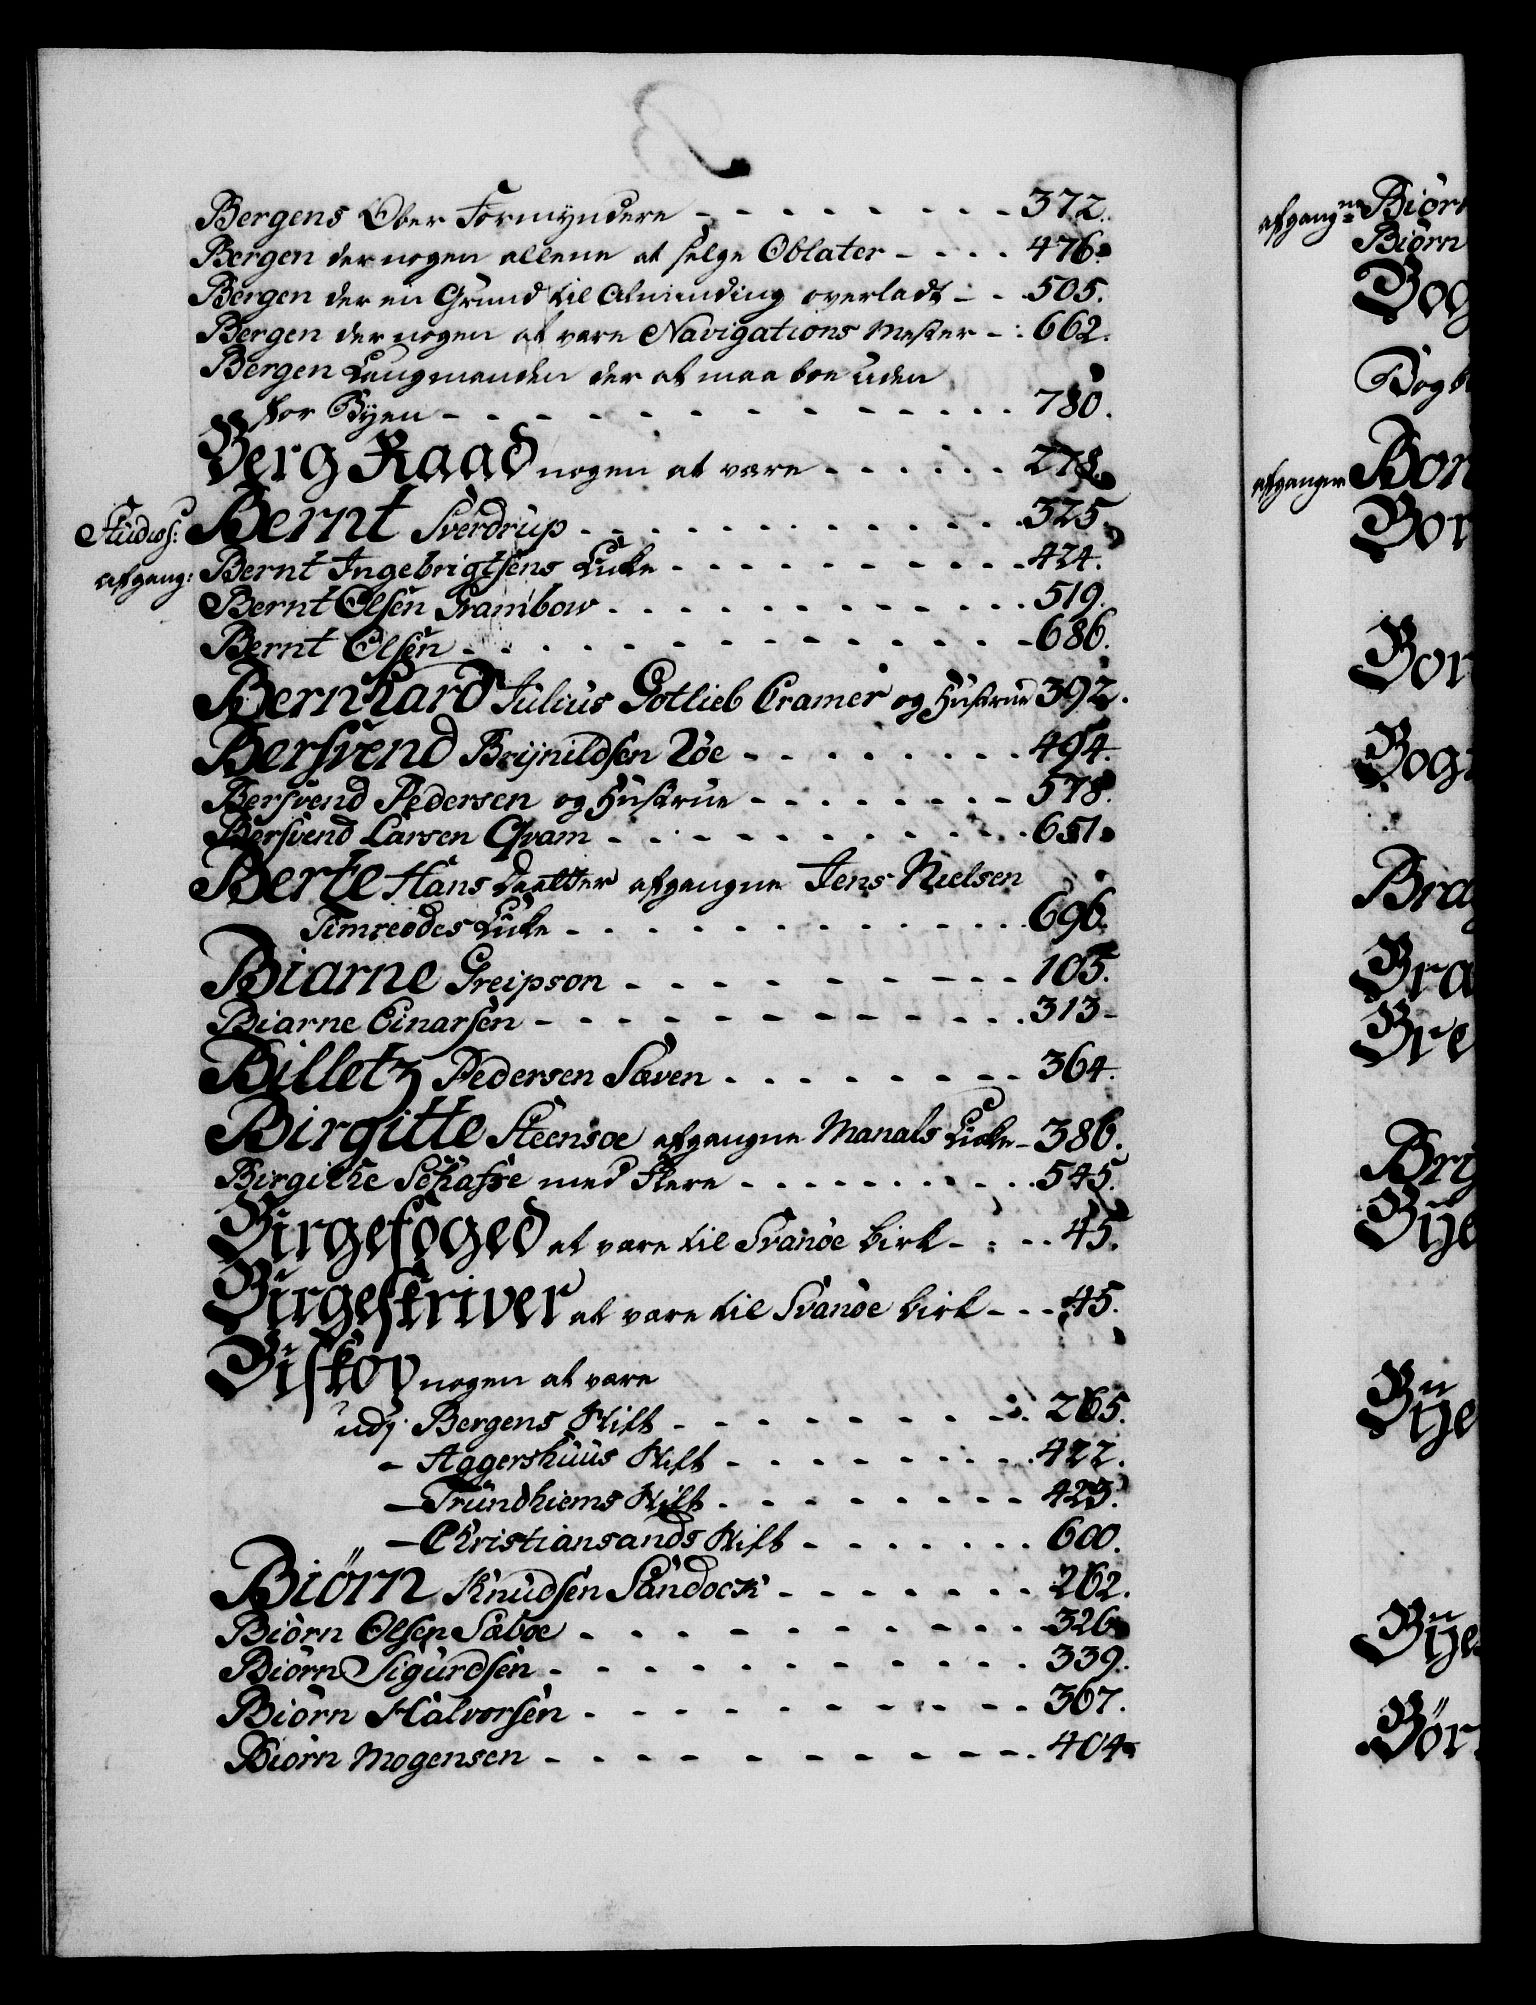 Bergens Ober Formyndere - - - - - - - - 372.
Bergen der nogen allene at selge Oblater - - - - 476.
Bergen der en Grund til Alminding overladt - - - 505.
Bergen der nogen at være Navigations Mester - : 662.
Bergen Laugmanden der at maa boe uden
for Byen - - - - - - - - - - - - - - 780.
Berg Raad nogen at være - - - - - - 278.
Studios: Bernt Sverdrup - - - - - - - - - - - 325.
afgang: Bernt Ingebrigtsens Enke - - - - - - - - - 424.
Bernt Olsen Grambow - - - - - - - - - - - 519.
Bernt Olsen - - - - - - - - - - - - - - 686.
Bernhard Julius Gotlieb Cramer og Hustrue 392.
Bersvend Brynildsen Röe - - - - - - - - 494.
Bersvend Pedersen og Hustrue - - - - - - - 578.
Bersvend Larsen Qvam - - - - - - - - - - - 651.
Berte Hans Daatter afgangne Jens Nielsen
Timreodes Enke - - - - - - - - - - - - 696.
Biarne Greipson - - - - - - - - - 105.
Biarne Einarsen - - - - - - - - - - - - 313-
Billetz Pedersen Sæven - - - - - - - - 364.
Birgitte Steensoe afgangne Manals Enke - 386.
Birgithe Schafre med Flere - - - - - - - - - 545.
Birgefoged at være til Svanöe birk - - - - 45.
Birgeskriver at være til Svanöe birk - - - 45.
Biskop nogen at være
udj Bergens Stift - - - - - - - - - 265.
- Aggershuus Stift - - - - - - - - - 422.
- Trundhiems Stift - - - - - - - - 423.
- Christiansands Stift - - - - - - - 600.
Biörn Knudsen Sandock - - - - - - - 262.
Biörn Olsen Sæboe - - - - - - - - - - - 326.
Biörn Sigurdsen - - - - - - - - - - - - 339.
Biörn Halvorsen - - - - - - - - - - - 367.
Biörn Mogensen - - - - - - - - - - - - 404.
afgangne Biör
Biörn
Bog
Bogb
afgangen Bor
Bor
Bor
Bog
Brag
Bra
Bre
Bry
Bye
Bye
Bye
Bör